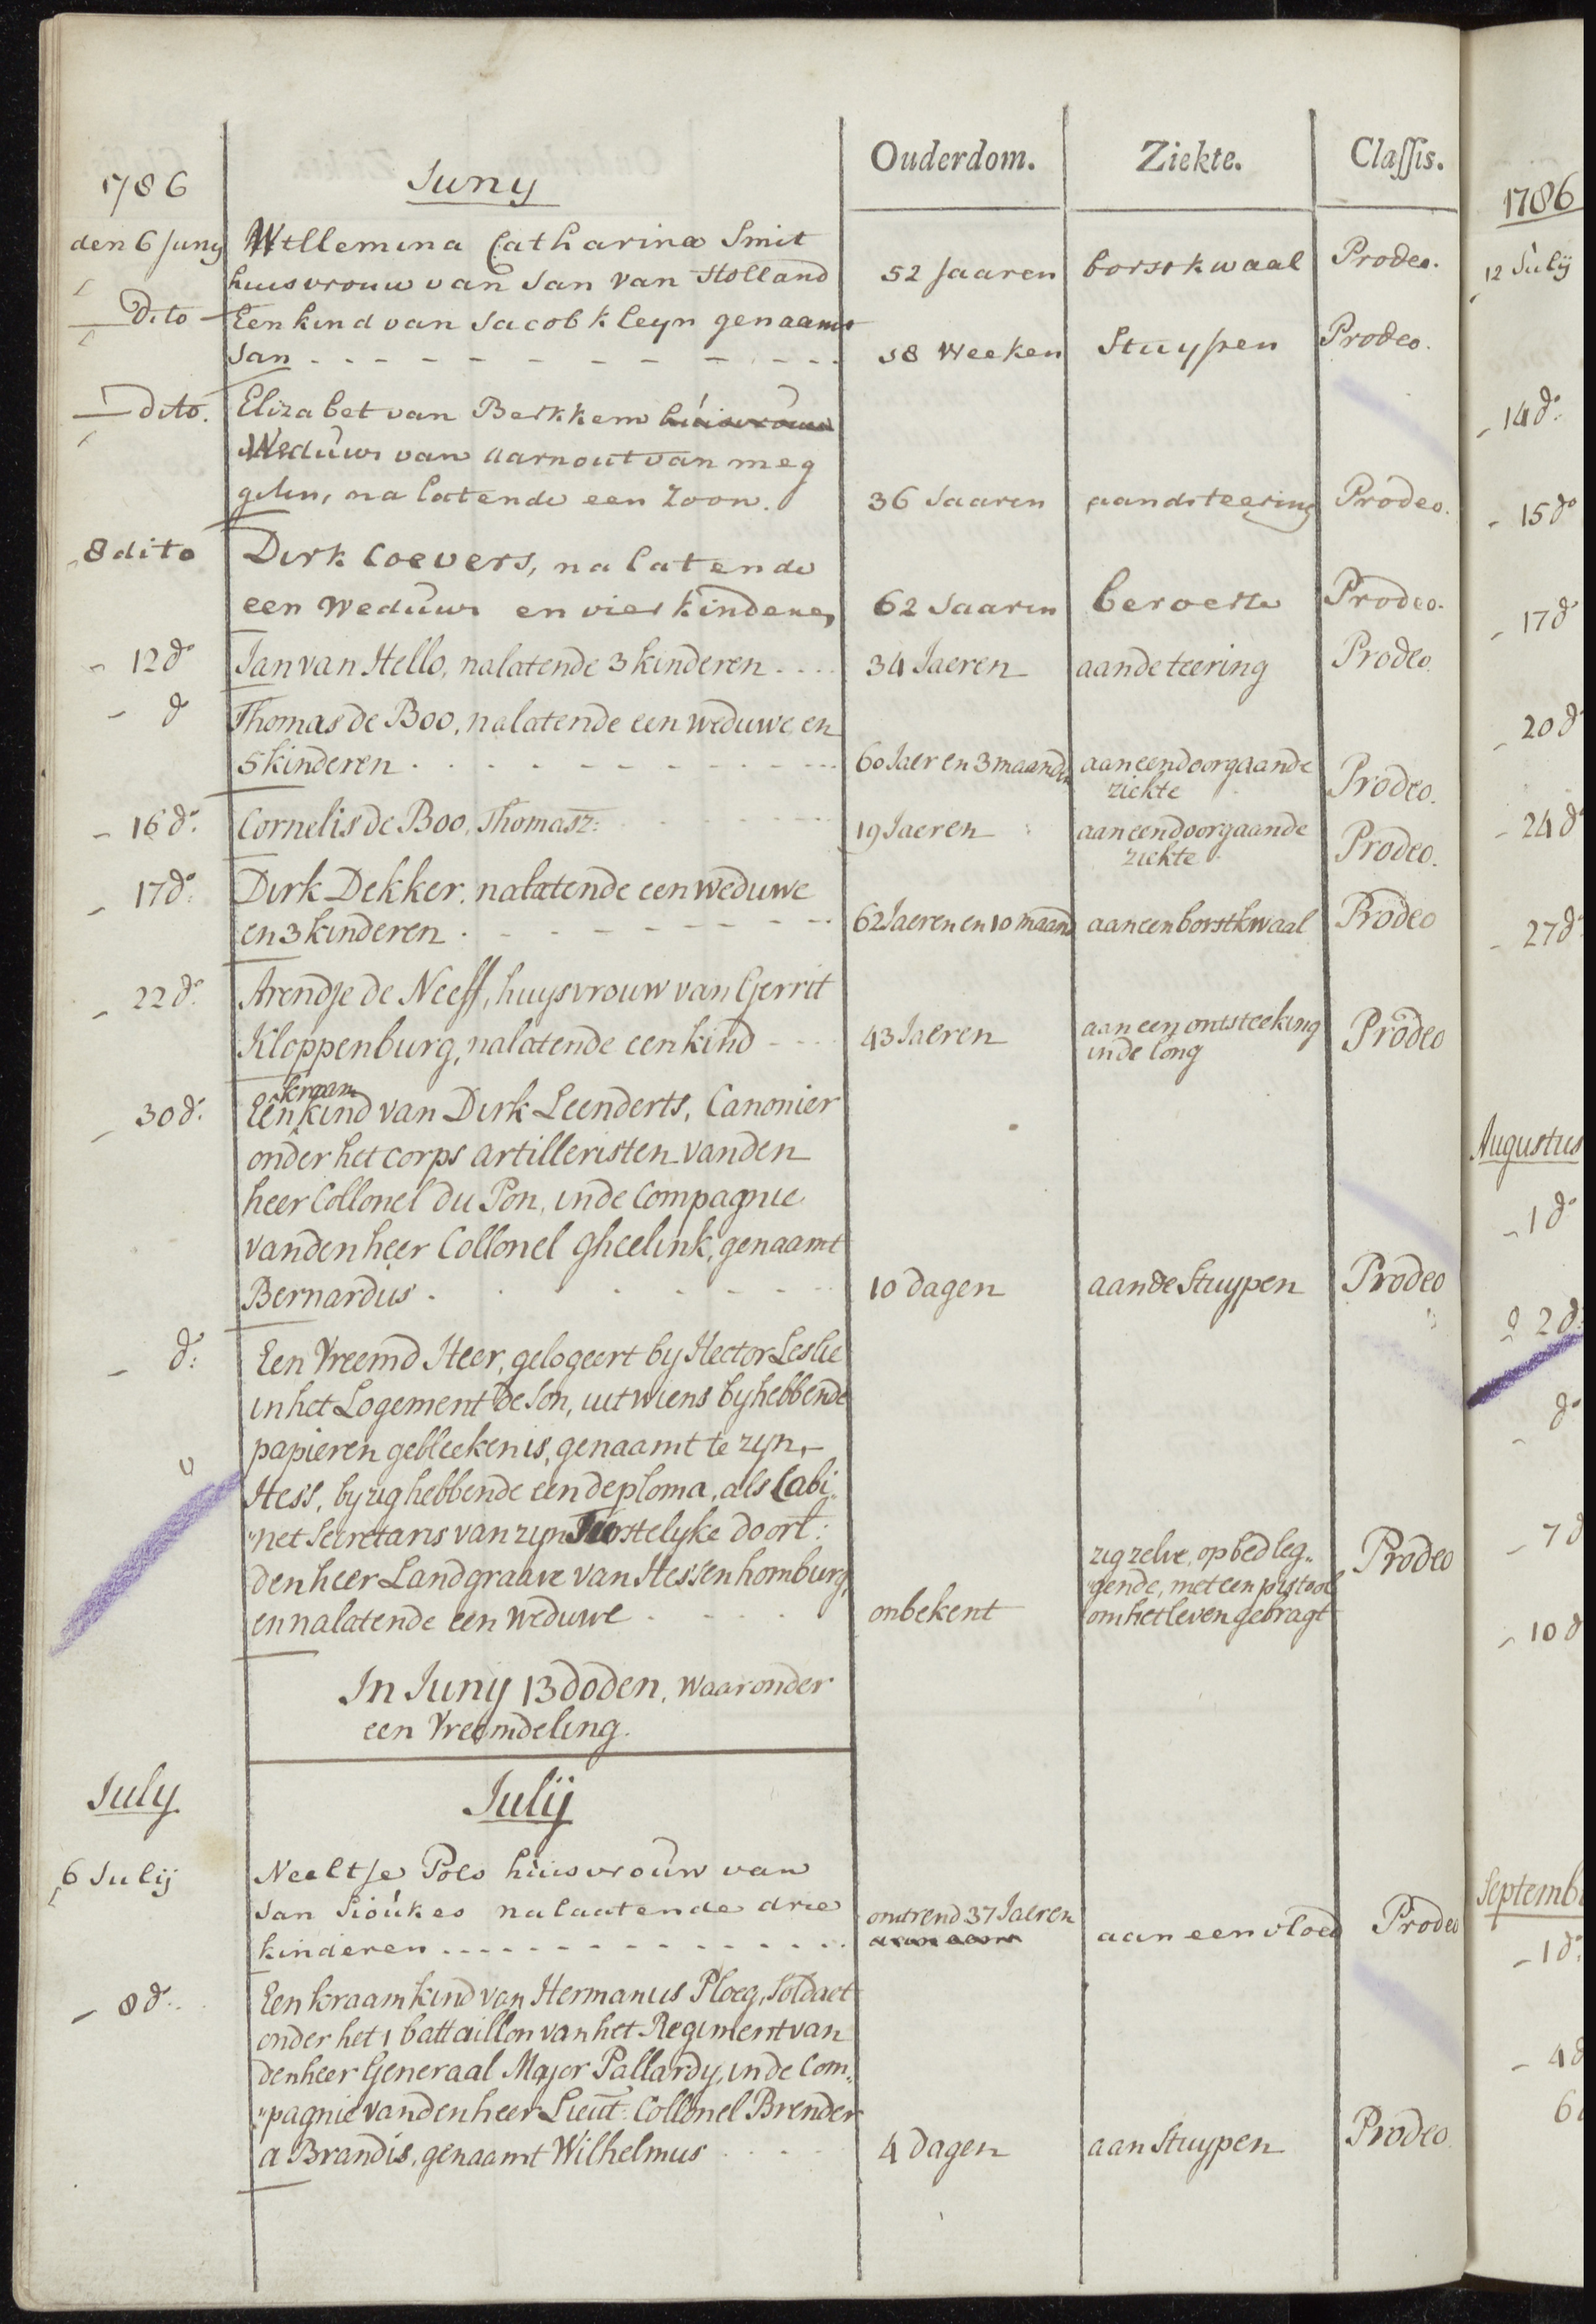 Ouderdom. Ziekte. Classis.
1786 Juny
den 6 Juny Willemina Catharina Smit
huisvrouw van Jan van Holland 52 Jaaren borstkwaal Prodeo.
Dito Een kind van Jacob Kleyn genaamt
Jan 58 Weeken Stuypen Prodeo.
dito. Elizabet van Berkkem huisvrouw
Weduwe van aarnout van meg
gelen, na latende een Zoon. 36 Jaaren aandeteering Prodeo.
8 dito Dirk Coevers, na latende
een Weduwe en vier kinderen 62 Jaaren beroerte Prodeo.
12 do Jan van Hello, nalatende 3 kinderen 34 Jaeren aan de teering Prodeo.
do Thomas de Boo, nalatende een weduwe en
5 kinderen 60 Jaer en 3 maanden aan een doorgaande
ziekte Prodeo.
16 do. Cornelis de Boo, Thomasz: 19 Jaeren aan een doorgaande
ziekte Prodeo.
17 do. Dirk Dekker, nalatende een weduwe
en 3 kinderen 62 Jaeren en 10 maand aan een borstkwaal Prodeo
22 do. Arendje de Neeff, huysvrouw van Gerrit
Kloppenburg, nalatende een kind 43 Jaeren aan een ontsteeking
in de long Prodeo
kraam
30 do. Een kind van Dirk Leenderts, Canonier
onder het corps artilleristen van den
heer Collonel du Pon, in de Compagnie
van den heer Collonel Gheelink, genaamt
Bernardus 10 dagen aan de Stuypen Prodeo
do: Een Vreemd Heer, gelogeert by Hector Leslie
in het Logement de Son, uit wiens byhebbende
papieren gebleeken is, genaamt te zyn,
Hess, by zig hebbende een deploma, als Cabi„
„net Secretaris van zyn Furstelyke doorl:
den heer Landgraave van Hessenhomburg,
en nalatende een weduwe onbekent
zig zelve, op bed leg„
„gende, met een pistool
om het leven gebragt Prodeo
In Juny 13 doden, waaronder
een Vreemdeling.
July Julij
6 Julij Neeltje Pols huisvrouw van
Jan Sioukes nalaatende drie
kinderen omtrend 37 Jaeren aan een vloed Prodeo
8 do. Een kraamkind van Hermanus Ploeg, Soldaet
onder het 1 battaillon van het Regiment van
den heer Generaal Major Pallardy, in de Com„
„pagnie van den heer Lieut: Collonel Brender
a Brandis, genaamt Wilhelmus 4 dagen aan Stuypen Prodeo
1786
12 Julij
14 do:
15 do
17 do
20 do
24 do
27 do
Augustus
1 do
2 do:
do
7 d
10 d
Septemb
1 do:
4 d
6